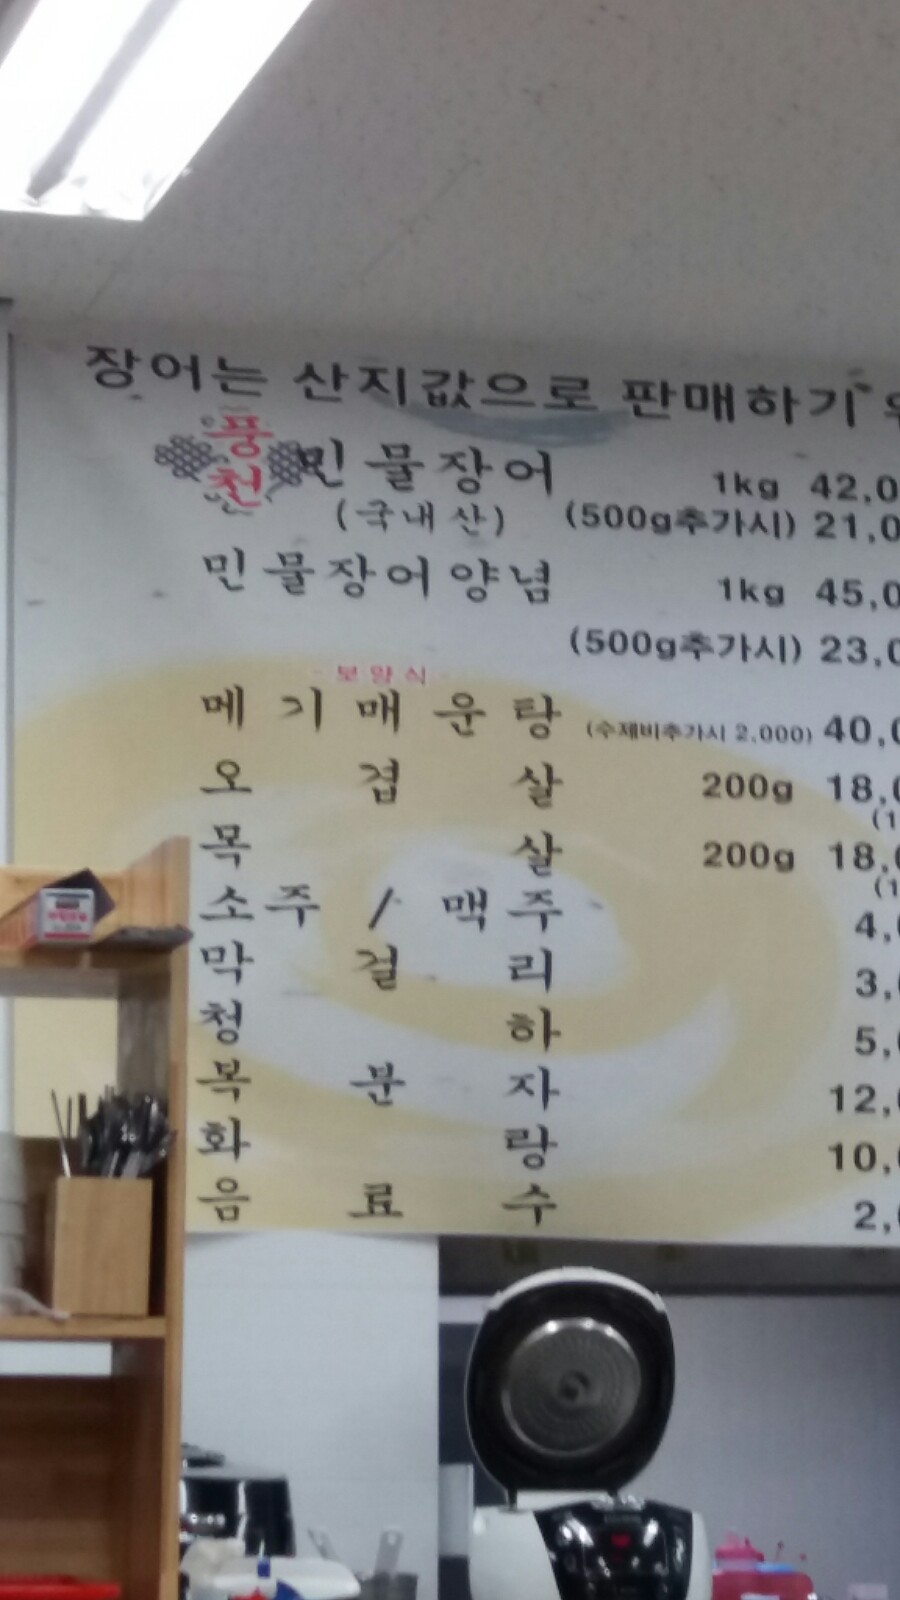 장어는 산지값으로 판매하기
풍천 민물장어 1kg 42,0
(국내산) (500g추가시) 21,0
민물장어양념 1kg 45,0
(500g추가시) 23,0
보양식
메기매운탕 (수제비추가시 2,000) 40,0
오겹살 200g 18,0
(1
목살 200g 18,0
(1
소주 / 맥주 4,
막걸리 3,
청하 5,
복분자 12,
화랑 10,
음료수 2,